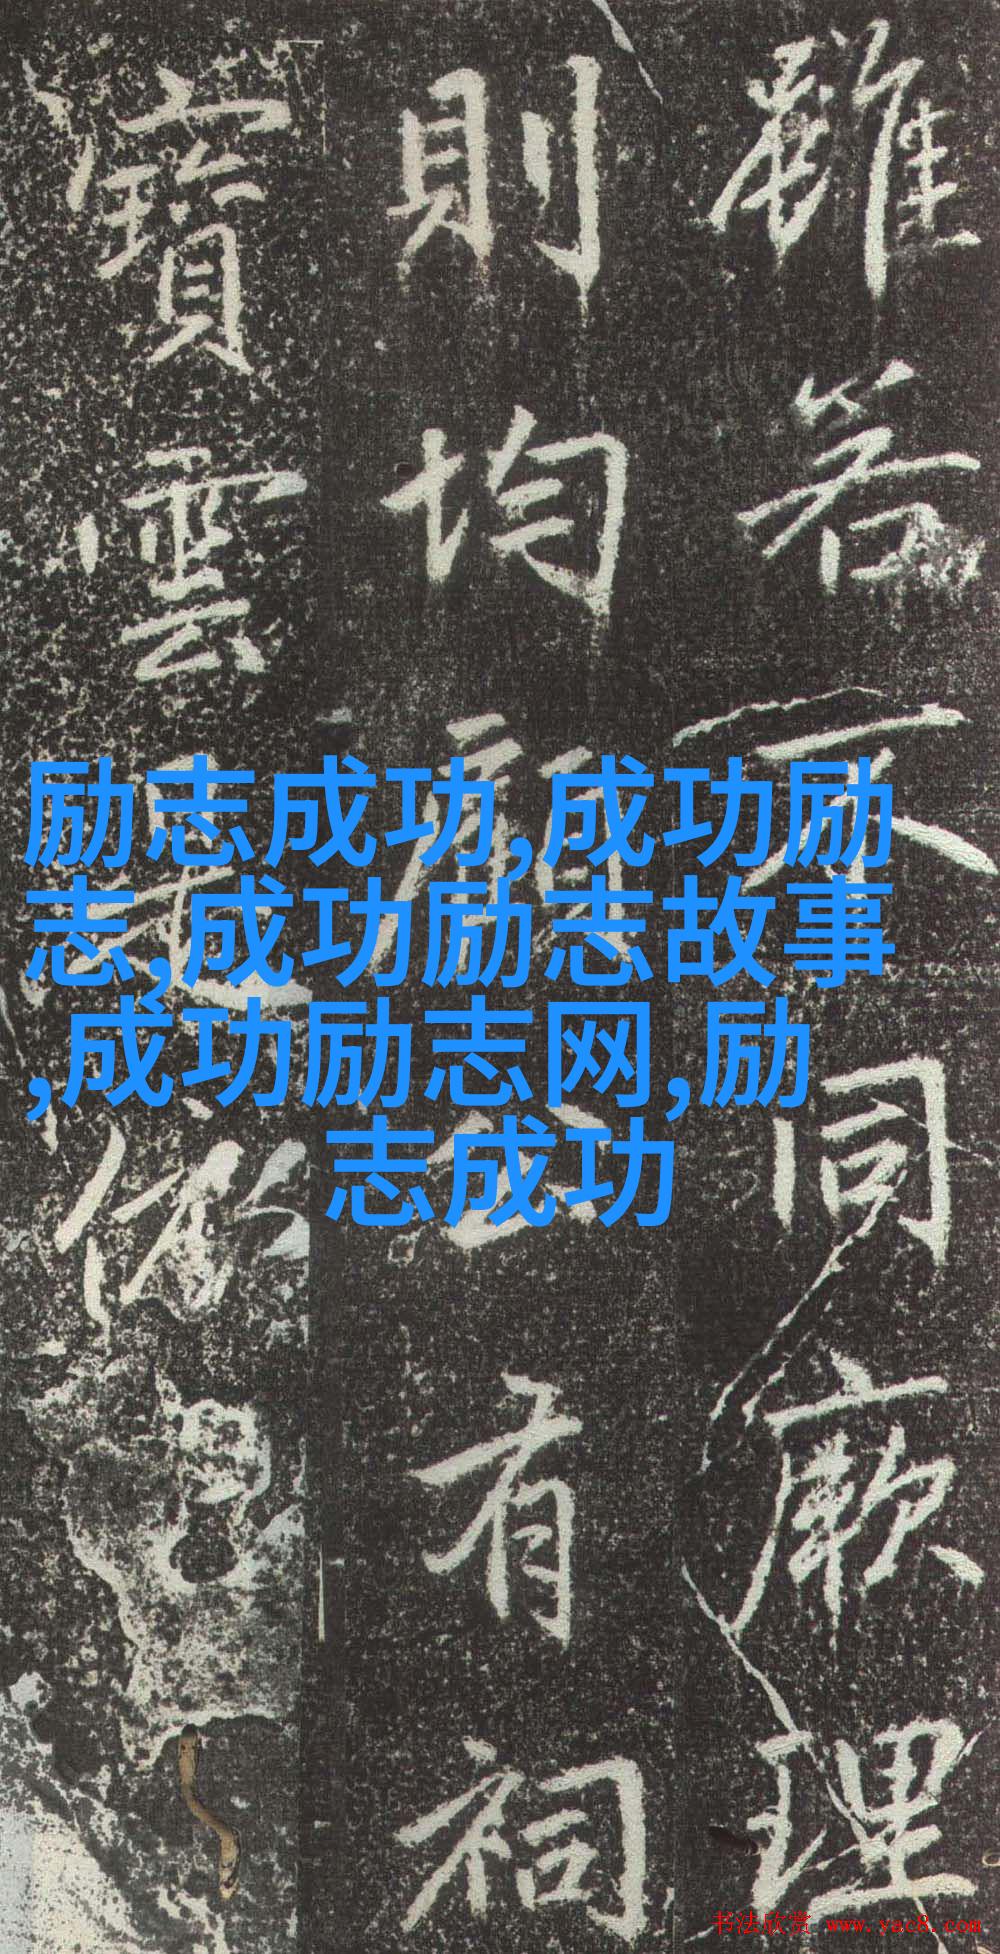 雖若不同厥理
則均顏公有祠
寶雲是
励志成功,成功励
志,成功励志故事
,成功励志网,励
志成功
书法欣赏 www.yac8.com